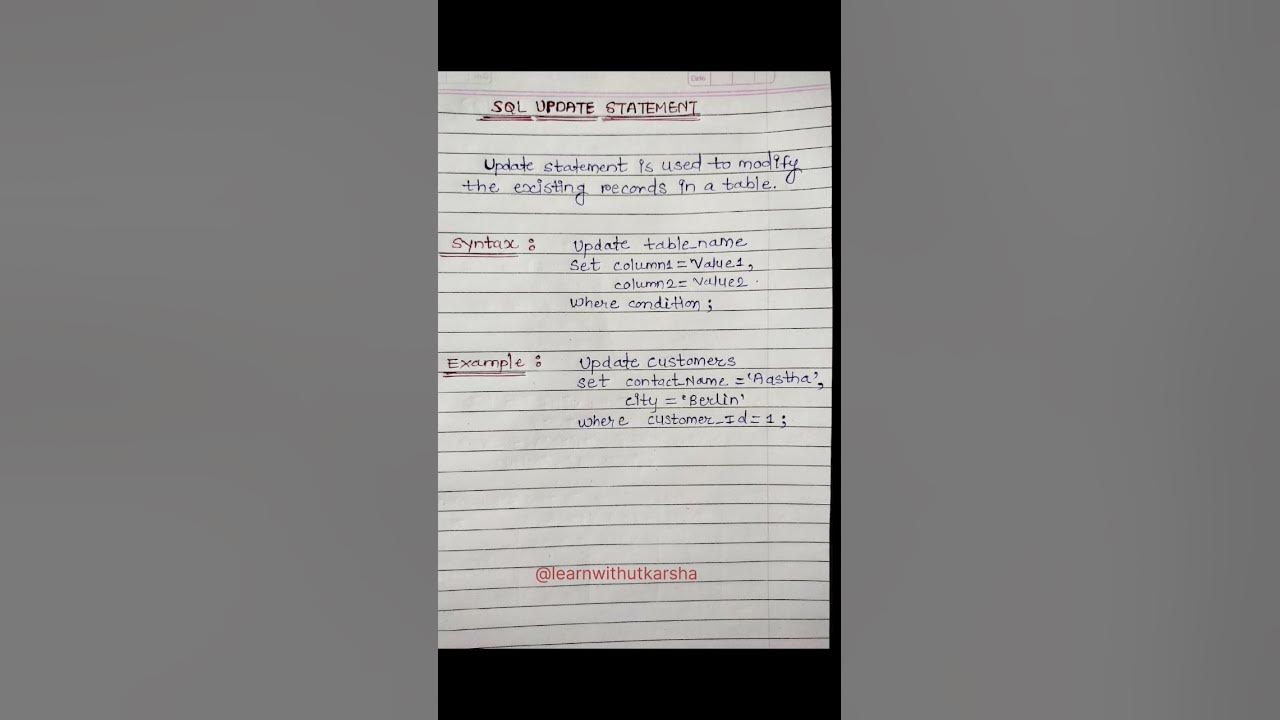 Date
SQL UPDATE STATEMENT
Update statement is used to modify
the existing records in a table.
Syntax : Update table_name
Set column1 = Value1,
column2 = Value2
Where condition ;
Example : Update customers
set contact_Name = 'Aastha',
city = 'Berlin'
where customer_Id = 1 ;
@learnwithutkarsha